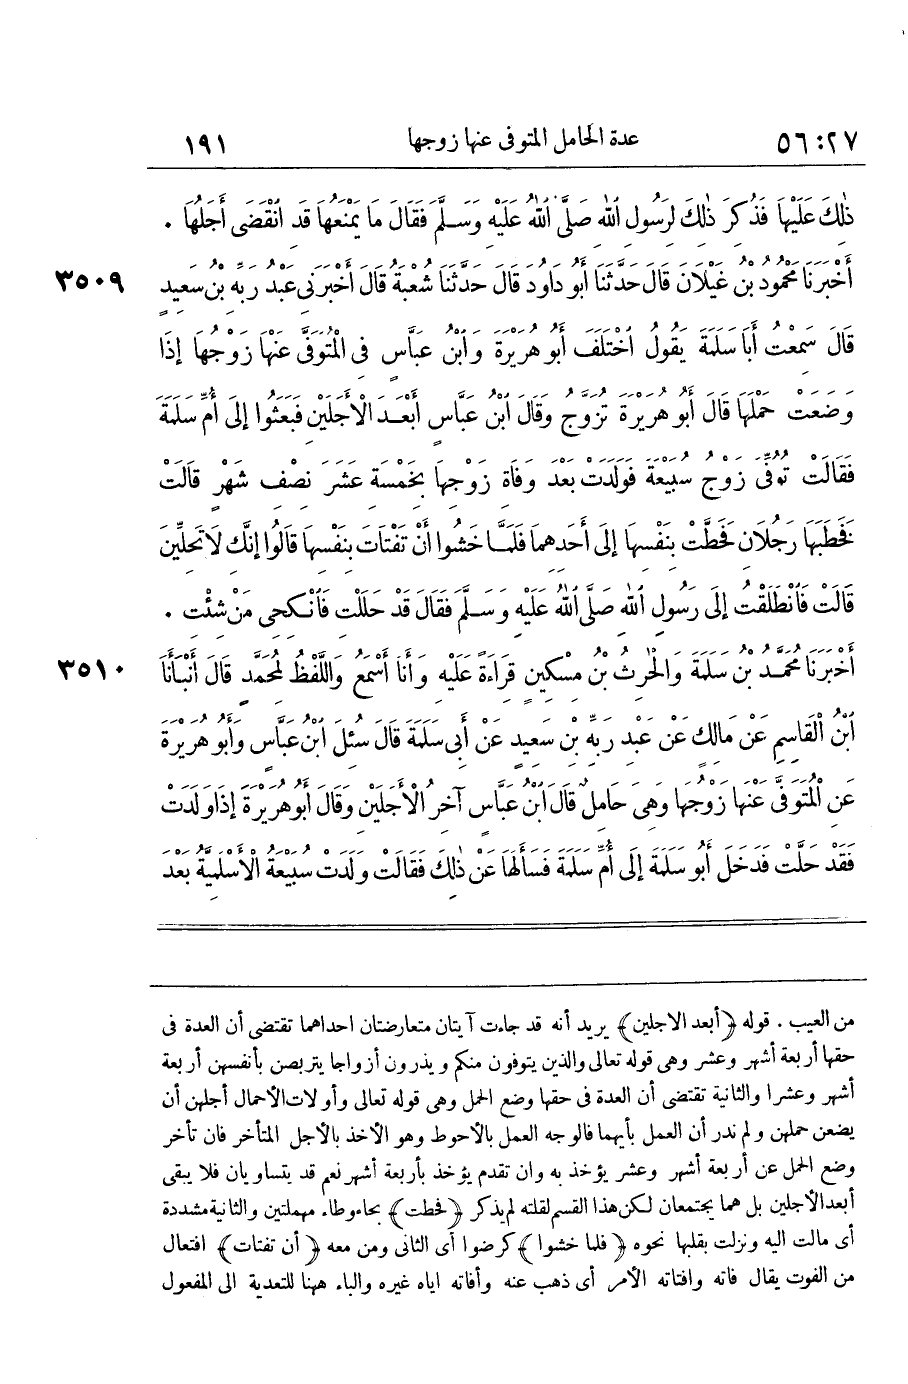 ٥٦:٢٧ عدة الحامل المتوفى عنها زوجها ١٩١
ذٰلِكَ عَلَيْهَا فَذُكِرَ ذٰلِكَ لِرَسُولِ ٱللهِ صَلَّى ٱللهُ عَلَيْهِ وَسَلَّمَ فَقَالَ مَا يَمْنَعُهَا قَدِ ٱنْقَضَى أَجَلُهَا .
٣٥٠٩ أَخْبَرَنَا مَحْمُودُ بْنُ غَيْلَانَ قَالَ حَدَّثَنَا أَبُو دَاوُدَ قَالَ حَدَّثَنَا شُعْبَةُ قَالَ أَخْبَرَنِى عَبْدُ رَبِّهِ بْنُ سَعِيدٍ
قَالَ سَمِعْتُ أَبَا سَلَمَةَ يَقُولُ ٱخْتَلَفَ أَبُو هُرَيْرَةَ وَٱبْنُ عَبَّاسٍ فِى الْمُتَوَفَّى عَنْهَا زَوْجُهَا إِذَا
وَضَعَتْ حَمْلَهَا قَالَ أَبُو هُرَيْرَةَ تُزَوَّجُ وَقَالَ ٱبْنُ عَبَّاسٍ أَبْعَدَ الْأَجَلَيْنِ فَبَعَثُوا إِلَى أُمِّ سَلَمَةَ
فَقَالَتْ تُوُفِّىَ زَوْجُ سُبَيْعَةَ فَوَلَدَتْ بَعْدَ وَفَاةِ زَوْجِهَا بِخَمْسَةَ عَشَرَ نِصْفِ شَهْرٍ قَالَتْ
فَخَطَبَهَا رَجُلَانِ فَحَطَّتْ بِنَفْسِهَا إِلَى أَحَدِهِمَا فَلَمَّا خَشُوا أَنْ تَفْتَاتَ بِنَفْسِهَا قَالُوا إِنَّكِ لَا تَحِلِّينَ
قَالَتْ فَٱنْطَلَقْتُ إِلَى رَسُولِ ٱللهِ صَلَّى ٱللهُ عَلَيْهِ وَسَلَّمَ فَقَالَ قَدْ حَلَلْتِ فَٱنْكِحِى مَنْ شِئْتِ .
٣٥١٠ أَخْبَرَنَا مُحَمَّدُ بْنُ سَلَمَةَ وَالْحٰرِثُ بْنُ مِسْكِينٍ قِرَاءَةً عَلَيْهِ وَأَنَا أَسْمَعُ وَاللَّفْظُ لِمُحَمَّدٍ قَالَ أَنْبَأَنَا
ٱبْنُ الْقَاسِمِ عَنْ مَالِكٍ عَنْ عَبْدِ رَبِّهِ بْنِ سَعِيدٍ عَنْ أَبِى سَلَمَةَ قَالَ سُئِلَ ٱبْنُ عَبَّاسٍ وَأَبُو هُرَيْرَةَ
عَنِ الْمُتَوَفَّى عَنْهَا زَوْجُهَا وَهِىَ حَامِلٌ قَالَ ٱبْنُ عَبَّاسٍ آخِرُ الْأَجَلَيْنِ وَقَالَ أَبُو هُرَيْرَةَ إِذَا وَلَدَتْ
فَقَدْ حَلَّتْ فَدَخَلَ أَبُو سَلَمَةَ إِلَى أُمِّ سَلَمَةَ فَسَأَلَهَا عَنْ ذٰلِكَ فَقَالَتْ وَلَدَتْ سُبَيْعَةُ الْأَسْلَمِيَّةُ بَعْدَ
من العيب . قوله ﴿أبعد الاجلين﴾ يريد أنه قد جاءت آيتان متعارضتان احداهما تقتضى أن العدة فى
حقها أربعة أشهر وعشر وهى قوله تعالى والذين يتوفون منكم ويذرون أزواجا يتربصن بأنفسهن أربعة
أشهر وعشرا والثانية تقتضى أن العدة فى حقها وضع الحمل وهى قوله تعالى وأولات الأحمال أجلهن أن
يضعن حملهن ولم ندر أن العمل بأيهما فالوجه العمل بالأحوط وهو الأخذ بالأجل المتأخر فان تأخر
وضع الحمل عن أربعة أشهر وعشر يؤخذ به وان تقدم يؤخذ بأربعة أشهر نعم قد يتساويان فلا يبقى
أبعد الأجلين بل هما يجتمعان لكن هذا القسم لقلته لم يذكر ﴿فحطت﴾ بحاء وطاء مهملتين والثانية مشددة
أى مالت اليه ونزلت بقلبها نحوه ﴿فلما خشوا﴾ كرضوا أى الثانى ومن معه ﴿أن تفتات﴾ افتعال
من الفوت يقال فاته وافتاته الأمر أى ذهب عنه وأفاته اياه غيره والباء ههنا للتعدية الى المفعول